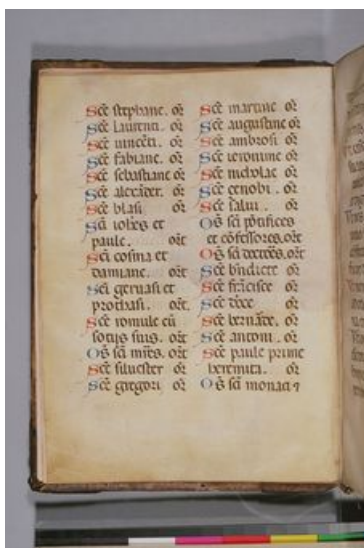 Sc̄e stephane. or̄
Sc̄e laurenti. or̄
Sc̄e uincēti. or̄
Sc̄e fabiane. or̄
Sc̄e sebastiane or̄
Sc̄e alexāder. or̄
Sc̄e blasi or̄
Sc̄i ioh̄es et
paule. or̄t
Sc̄i cosma et
damiane. or̄t
Sc̄i geruasi et
prothasi. or̄t.
Sc̄e romule cū
sotijs suis. or̄t
Oš sc̄i mr̄es. or̄t
Sc̄e siluester or̄
Sc̄e gregori or̄
Sc̄e martine or̄
Sc̄e augustine or̄
Sc̄e ambrosi or̄
Sc̄e ieronime or̄
Sc̄e nicholae or̄
Sc̄e cenobi. or̄
Sc̄e salui. or̄
Oš sc̄i pōtifices
et cōfessores. or̄t
Oš sc̄i doctōes. or̄t
Sc̄e b̄ndicte or̄
Sc̄e frācisce or̄
Sc̄e or̄
Sc̄e bernar̄de. or̄
Sc̄e antoni. or̄
Sc̄e paule prime
heremita. or̄
Oš sc̄i monaci ⁊